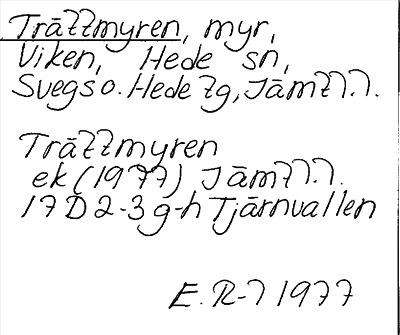 Trättmyren, myr,
Viken, Hede sn,
Svegs o. Hede tg, Jämtl.l.
Trättmyren
ek (1977) Jämtl.l.
17D 2-3 g-h Tjärnvallen
E. R-l 1977